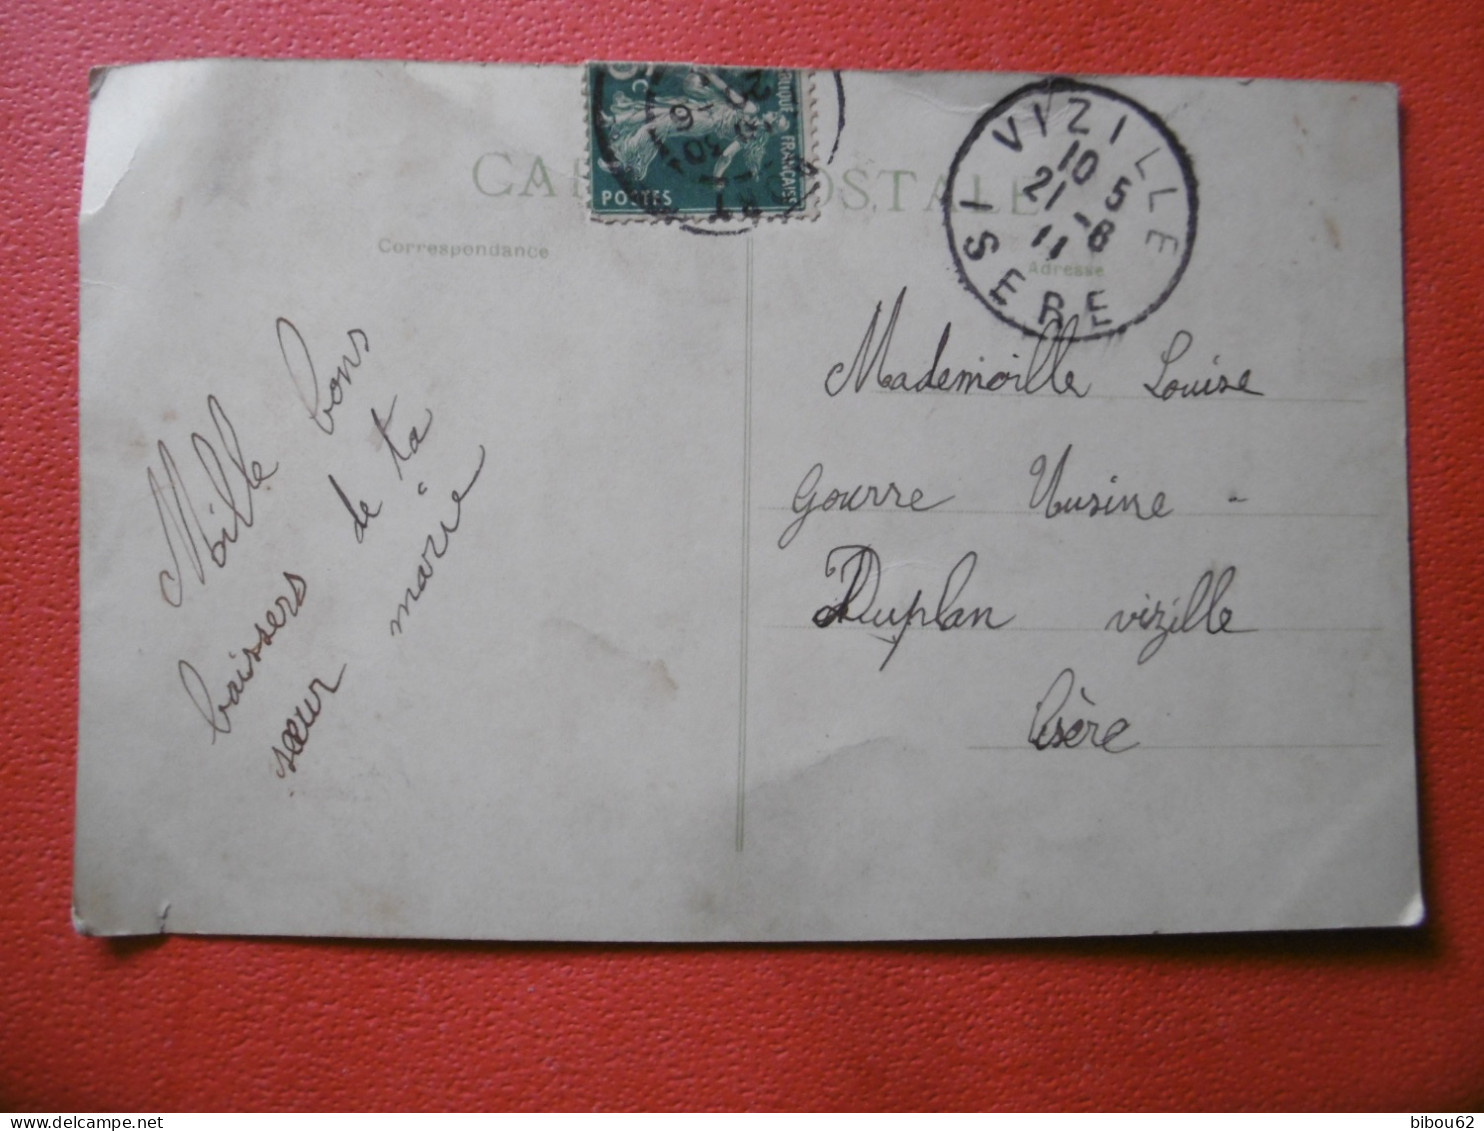 CARTE POSTALE
POSTES
FRANÇAISE
VIZILLE
10 5
21 -8
11
ISERE
Correspondance
Adresse
Moille bons
baissers de ta
sœur marie
Mademoille Louise
Gourre Uusine -
Duplan vizille
Isère
bibou62